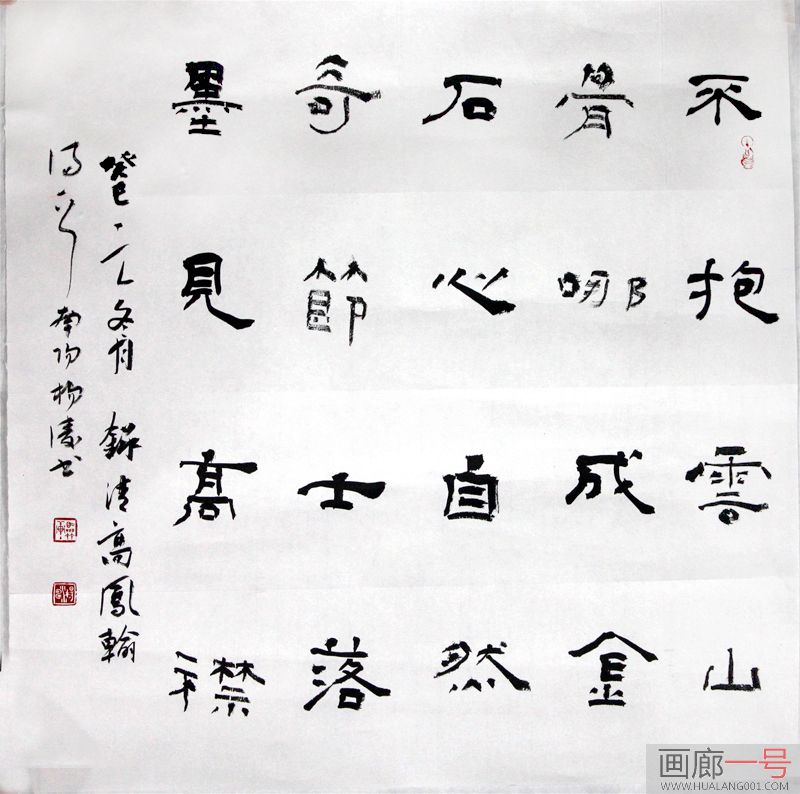 不抱雲山
骨哪成金
石心自然
奇節士落
墨見高襟
癸巳冬月 錄清高鳳翰
詩一首 南陽楊濤書
画廊一号
WWW.HUALANG001.COM